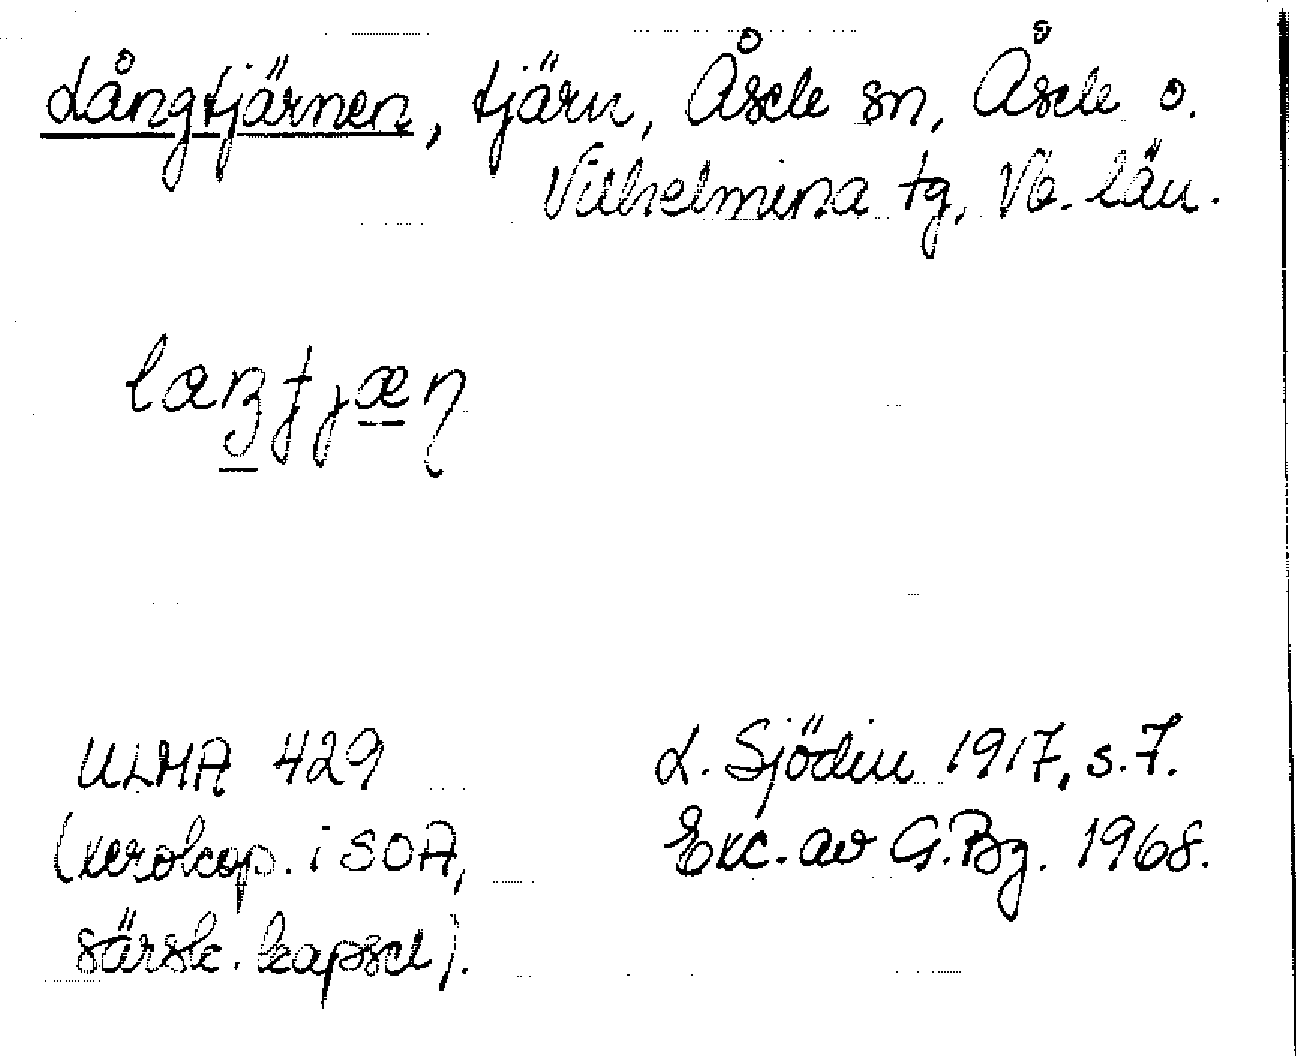 Långtjärnen, tjärn, Åsele sn, Åsele o.
Vilhelmina tg, Vb. län.
ULMA 429
(xerokop. i SOA,
särsk. kapsel).
L. Sjödin 1917, s. 7.
Exc. av G. Bg. 1968.